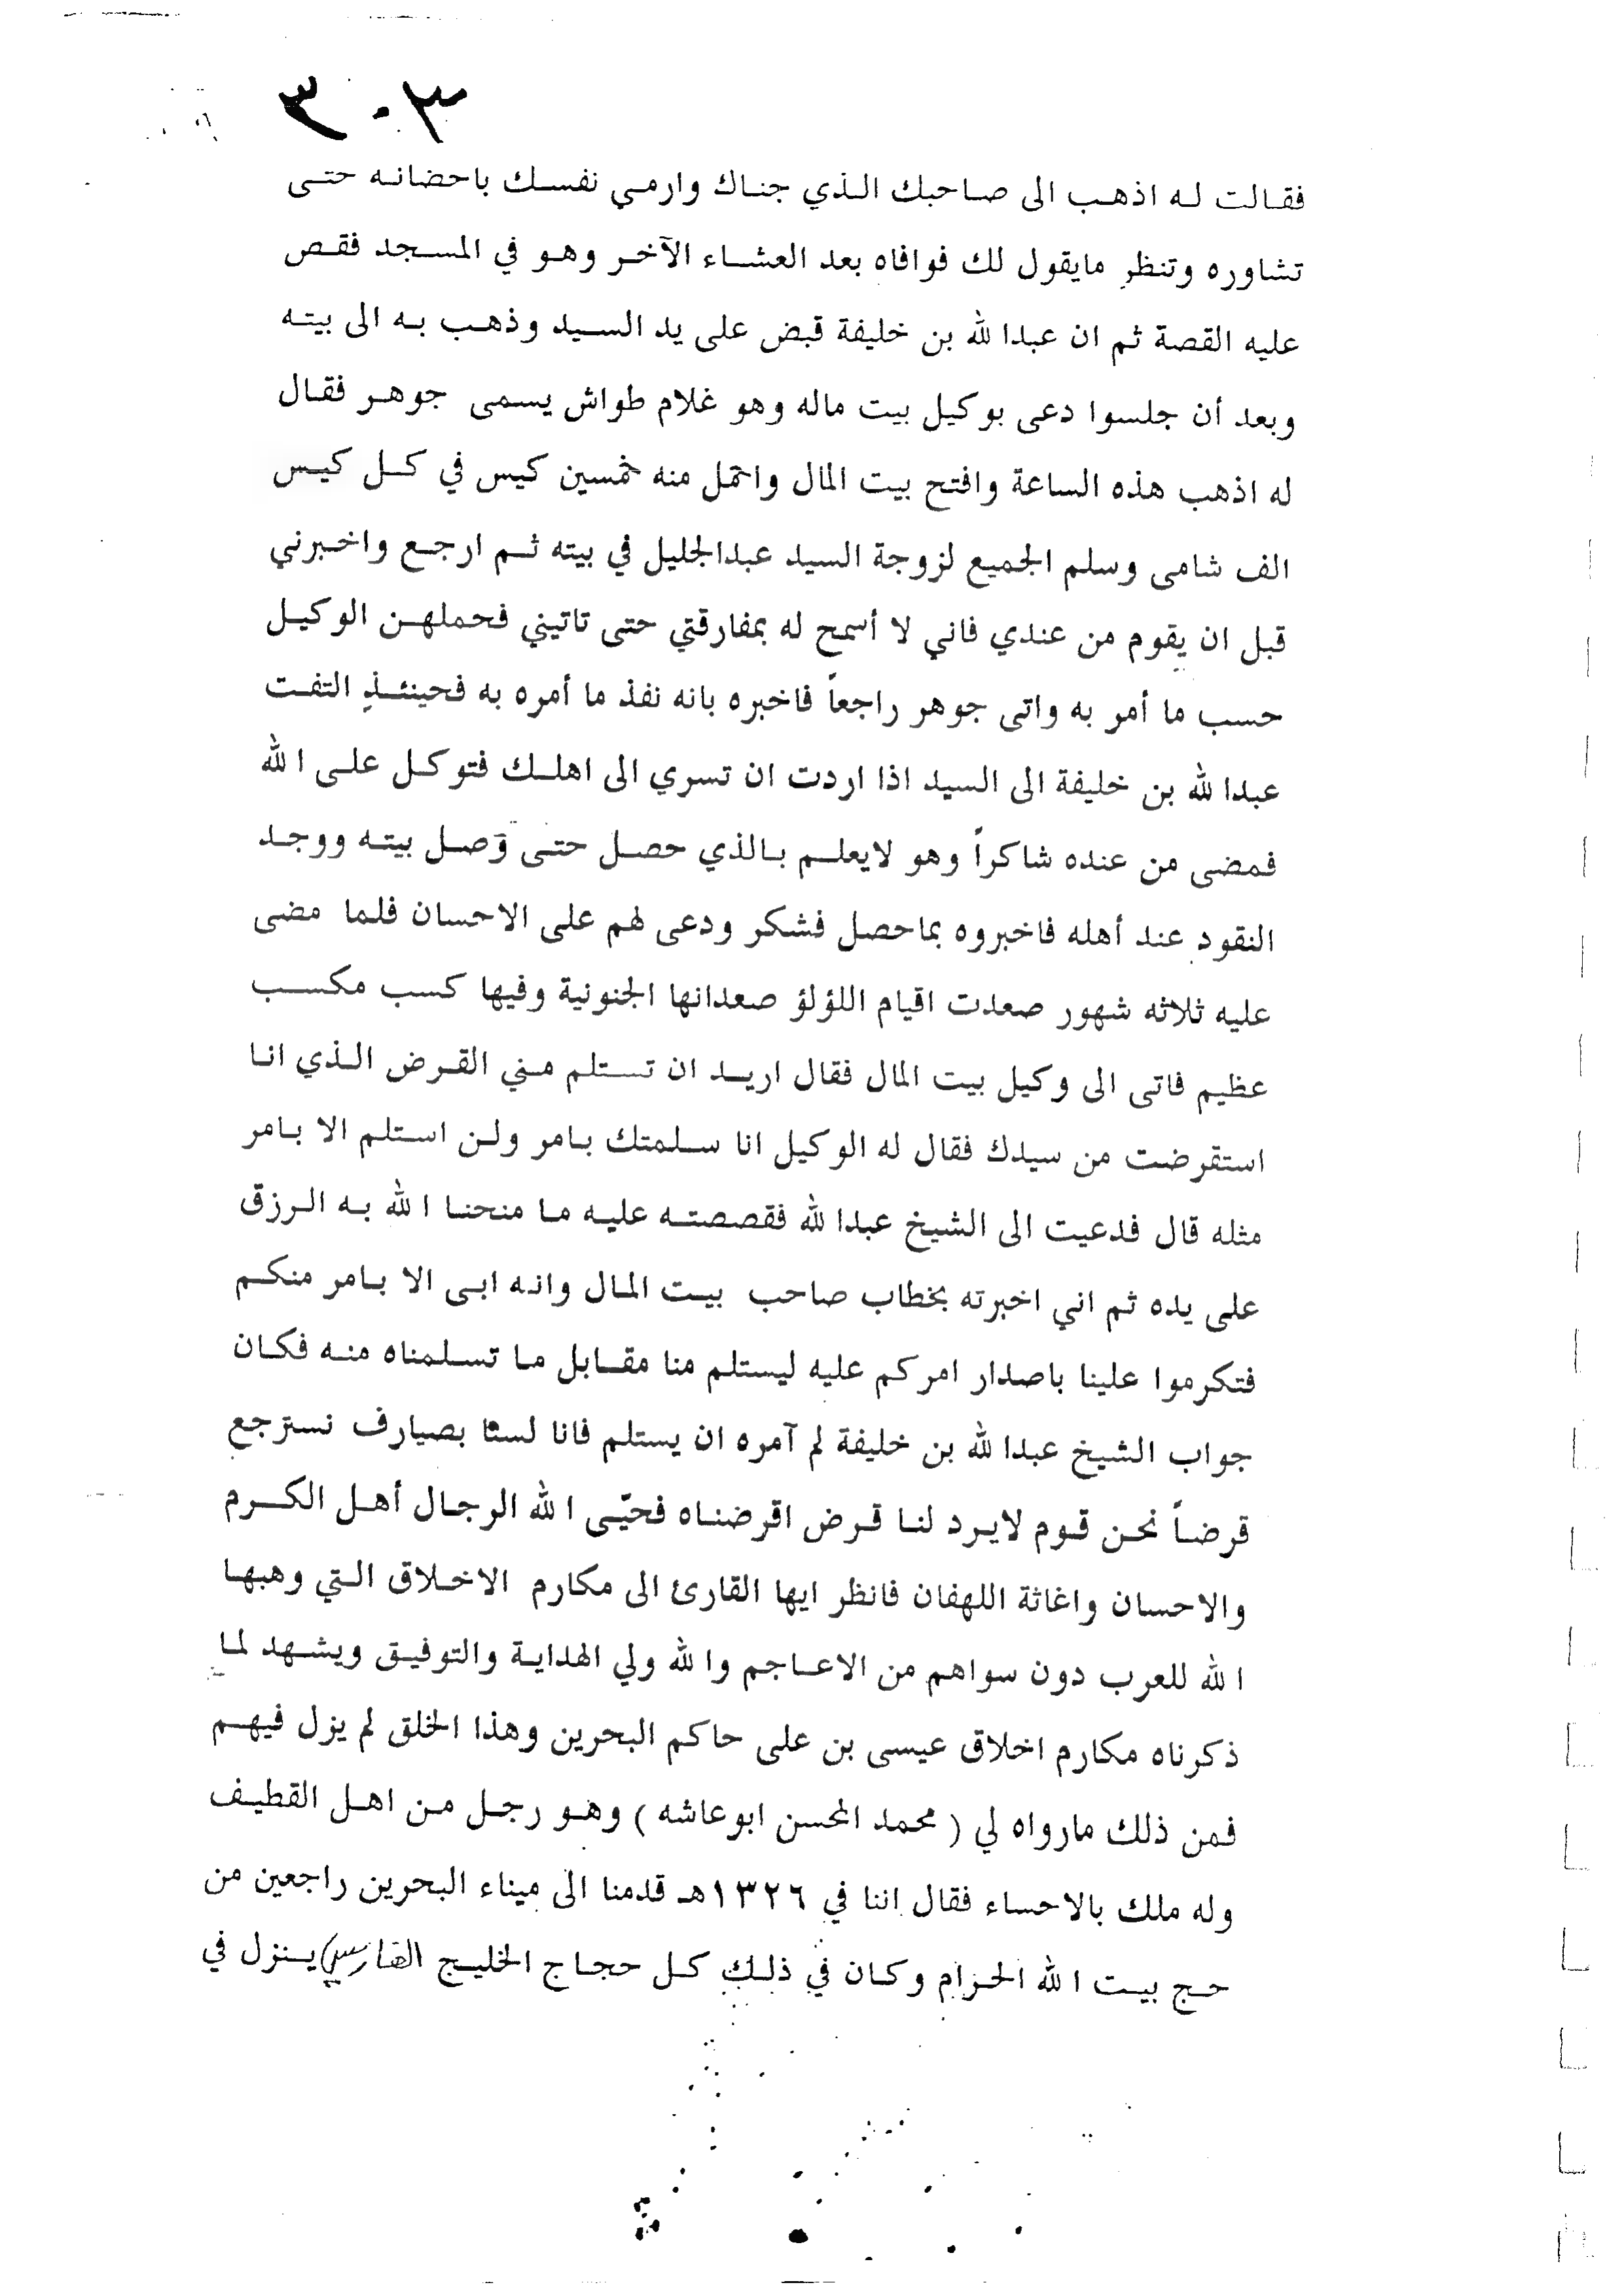 ٣٠٣
فقالت له اذهب الى صاحبك الذي جناك وارمي نفسك باحضانه حتى
تشاوره وتنظر مايقول لك فوافاه بعد العشاء الآخر وهو في المسجد فقص
عليه القصة ثم ان عبدا لله بن خليفة قبض على يد السيد وذهب به الى بيته
وبعد أن جلسوا دعى بوكيل بيت ماله وهو غلام طواش يسمى جوهر فقال
له اذهب هذه الساعة وافتح بيت المال واحمل منه خمسين كيس في كل كيس
الف شامى وسلم الجميع لزوجة السيد عبدالجليل في بيته ثم ارجع واخبرني
قبل ان يقوم من عندي فاني لا أسمح له بمفارقتي حتى تاتيني فحملهن الوكيل
حسب ما أمر به واتى جوهر راجعاً فاخبره بانه نفذ ما أمره به فحينئذٍ التفت
عبدا لله بن خليفة الى السيد اذا اردت ان تسري الى اهلك فتوكل على الله
فمضى من عنده شاكراً وهو لايعلم بالذي حصل حتى وصل بيته ووجد
النقود عند أهله فاخبروه بماحصل فشكر ودعى لهم على الاحسان فلما مضى
عليه ثلاثه شهور صعدت اقيام اللؤلؤ صعدانها الجنونية وفيها كسب مكسب
عظيم فاتى الى وكيل بيت المال فقال اريد ان تستلم مني القرض الذي انا
استقرضت من سيدك فقال له الوكيل انا سلمتك بامر ولن استلم الا بامر
مثله قال فدعيت الى الشيخ عبدا لله فقصصته عليه ما منحنا الله به الرزق
على يده ثم اني اخبرته بخطاب صاحب بيت المال وانه ابى الا بامر منكم
فتكرموا علينا باصدار امركم عليه ليستلم منا مقابل ما تسلمناه منه فكان
جواب الشيخ عبدا لله بن خليفة لم آمره ان يستلم فانا لسنا بصيارف نسترجع
قرضاً نحن قوم لايرد لنا قرض اقرضناه فحيّى الله الرجال أهل الكرم
والاحسان واغاثة اللهفان فانظر ايها القارئ الى مكارم الاخلاق التي وهبها
الله للعرب دون سواهم من الاعاجم والله ولي الهداية والتوفيق ويشهد لما
ذكرناه مكارم اخلاق عيسى بن على حاكم البحرين وهذا الخلق لم يزل فيهم
فمن ذلك مارواه لي ( محمد المحسن ابوعاشه ) وهو رجل من اهل القطيف
وله ملك بالاحساء فقال اننا في ١٣٢٦هـ قدمنا الى ميناء البحرين راجعين من
حج بيت الله الحرام وكان في ذلك كل حجاج الخليج الفارسي ينزل في